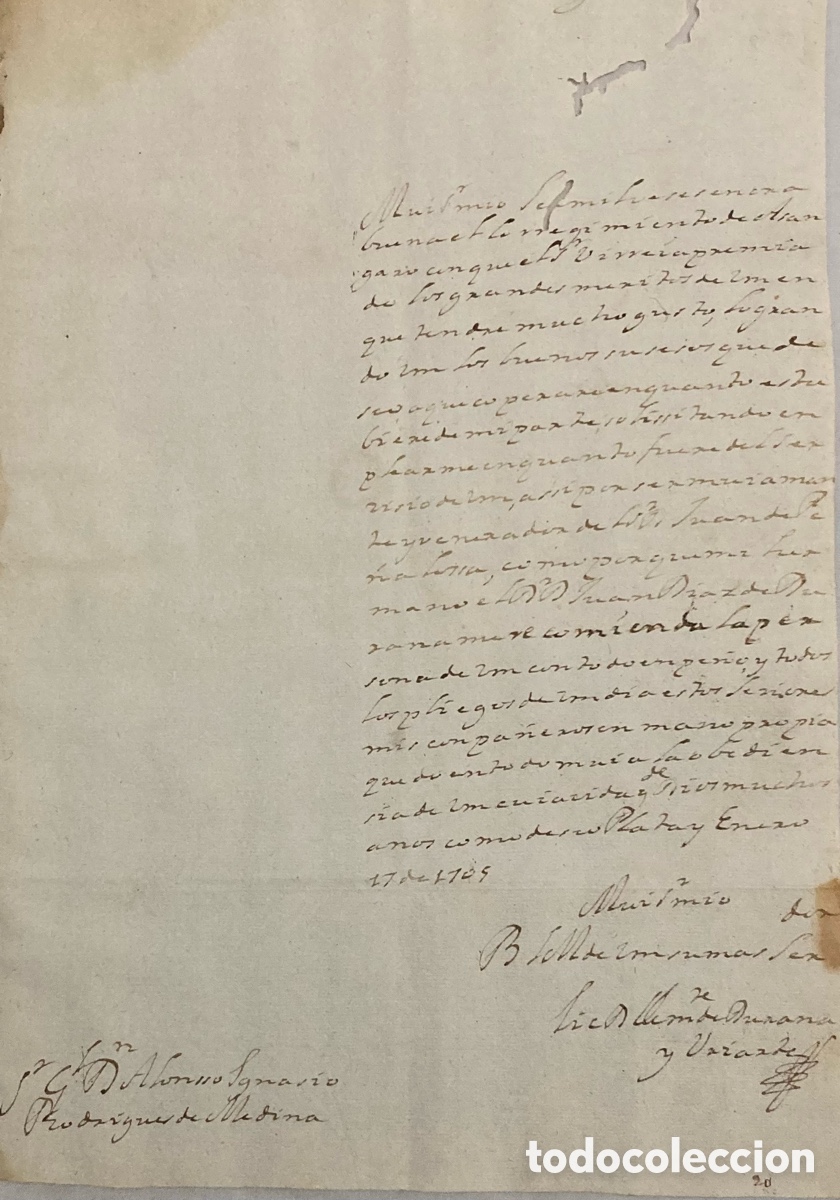 Mui Sr mio Selemil vese senora
buena el Corregimiento de Asan
garo con que el Sr Virrei a premia
do los grandes meritos de Vm en
que tendre mucho gusto, logran
do Vm los buenos susesos que de
seo a que coperare en quanto estu
biere de mi parte solissitando en
plearme en quanto fuere del ser
visio de Vm, assi por ser mui aman
te y venerador de los Juan de Pe
ñalossa, como porque mi her
mano el Dr D Juan Diaz de Du
rana me recomienda la per
sona de Vm con todo enpeño, y todos
los pliegos de Vm di a estos Señores
mis conpañeros en mano propia
quedo en todo mui a la obedien
sia de Vm cuia vida gde Dios muchos
años como deseo Plata y Enero
17 de 1705
Mui Sr mio
B l M de Vm su mas Ser
dor
Lic D Clemte de Durana
y Uriarte
Sr Gl Dn Alonsso Ignasio
Rodrigues de Medina
todocoleccion
20